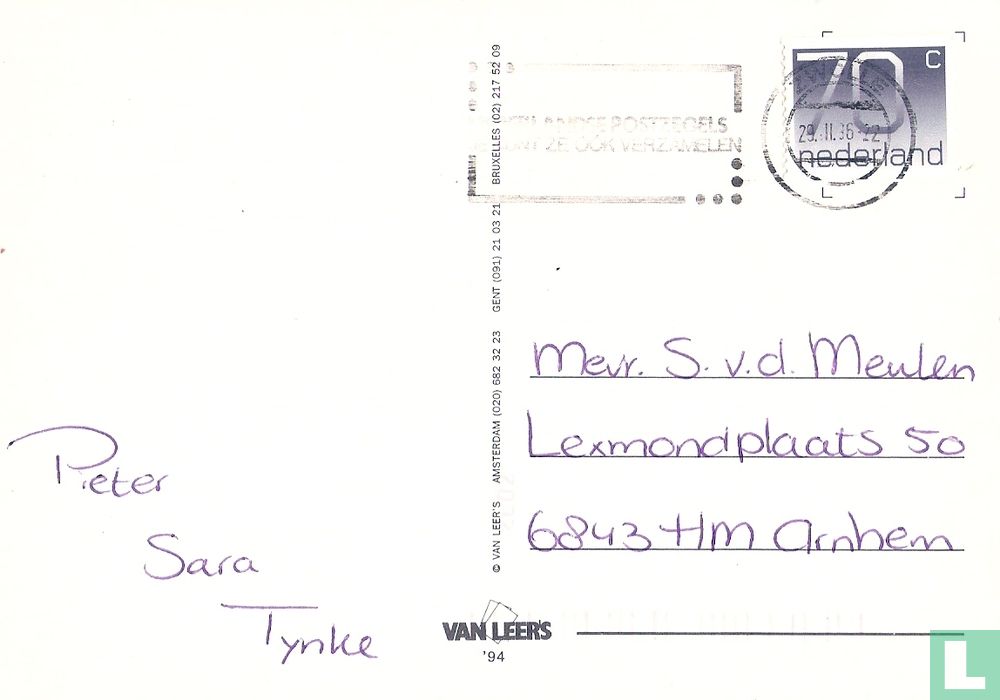 70 C
nederland
29.11.96-22
POSTZEGELS
ZE OOK VERZAMELEN
© VAN LEER'S AMSTERDAM (020) 682 32 23 GENT (091) 21 03 21 BRUXELLES (02) 217 52 09
Mevr. S. v.d. Meulen
Lexmondplaats 50
6843 HM Arnhem
Pieter
Sara
Tynke
VAN LEER'S
'94
L